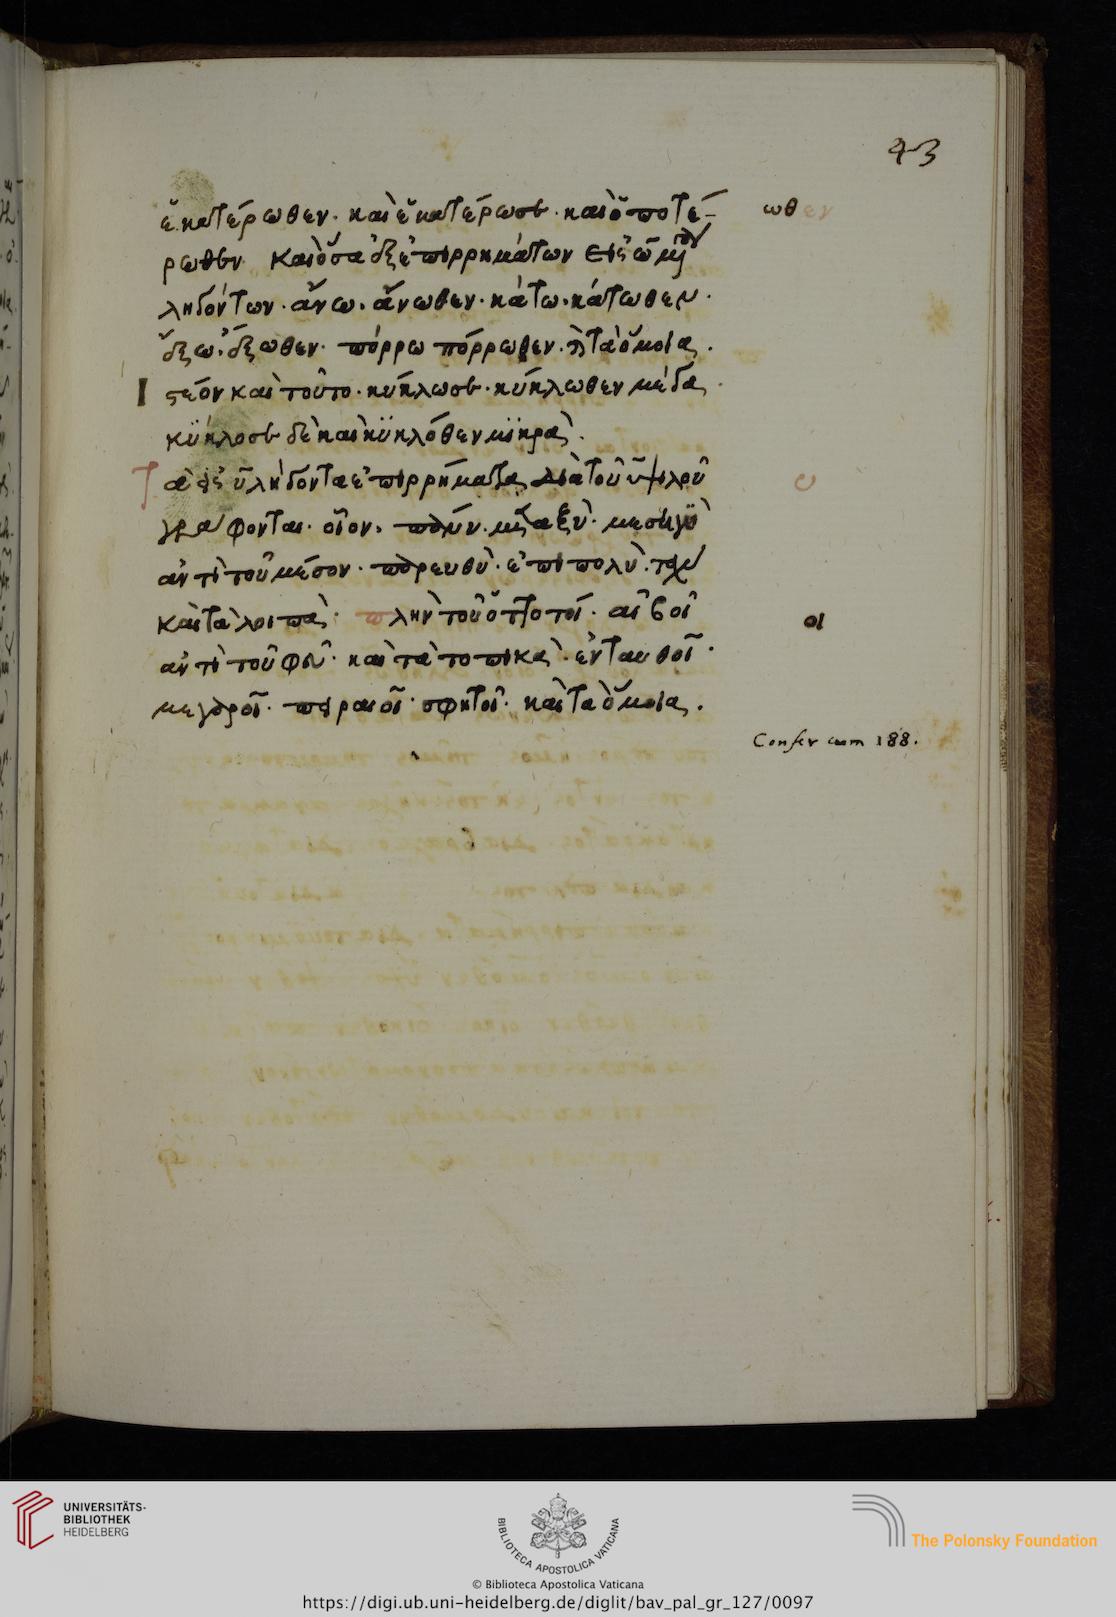 43
ἑκατέρωθεν· καὶ ἑκατέρωσε· καὶ ὁποτέ-
ωθεν
ρωθεν καὶ ὅσα ἐξ ἐπιρρημάτων εἰς ω μέγα
ληγόντων· ἄνω· ἄνωθεν· κάτω· κάτωθεν·
ἔξω· ἔξωθεν· πόρρω πόρρωθεν· καὶ τὰ ὅμοια.
Ιστέον καὶ τοῦτο· κύκλωσε· κύκλωθεν μέγα·
κϋκλοσε δὲ καὶ κϋκλόθεν μϊκρὰ·
Τὰ εἰς υ λήγοντα ἐπιρρήματα διὰ τοῦ υ ψιλοῦ
υ
γράφονται· οἷον· πάνυ· μεταξὺ· μεσηγὺ
ἀντὶ τοῦ μέσον· παρευθὺ· ἐπιπολὺ·
καὶ τὰ λοιπὰ· πλὴν τοῦ ὀττοτοῖ· αἰβοῖ
οι
ἀντὶ τοῦ φεῦ· καὶ τὰ τοπικὰ· ἐνταυθοῖ·
μεγαροῖ· πειραιοῖ· σφητοῖ· καὶ τὰ ὅμοια.
Confer cum 188.
UNIVERSITÄTS-
BIBLIOTHEK
HEIDELBERG
BIBLIOTECA APOSTOLICA VATICANA
The Polonsky Foundation
© Biblioteca Apostolica Vaticana
https://digi.ub.uni-heidelberg.de/diglit/bav_pal_gr_127/0097